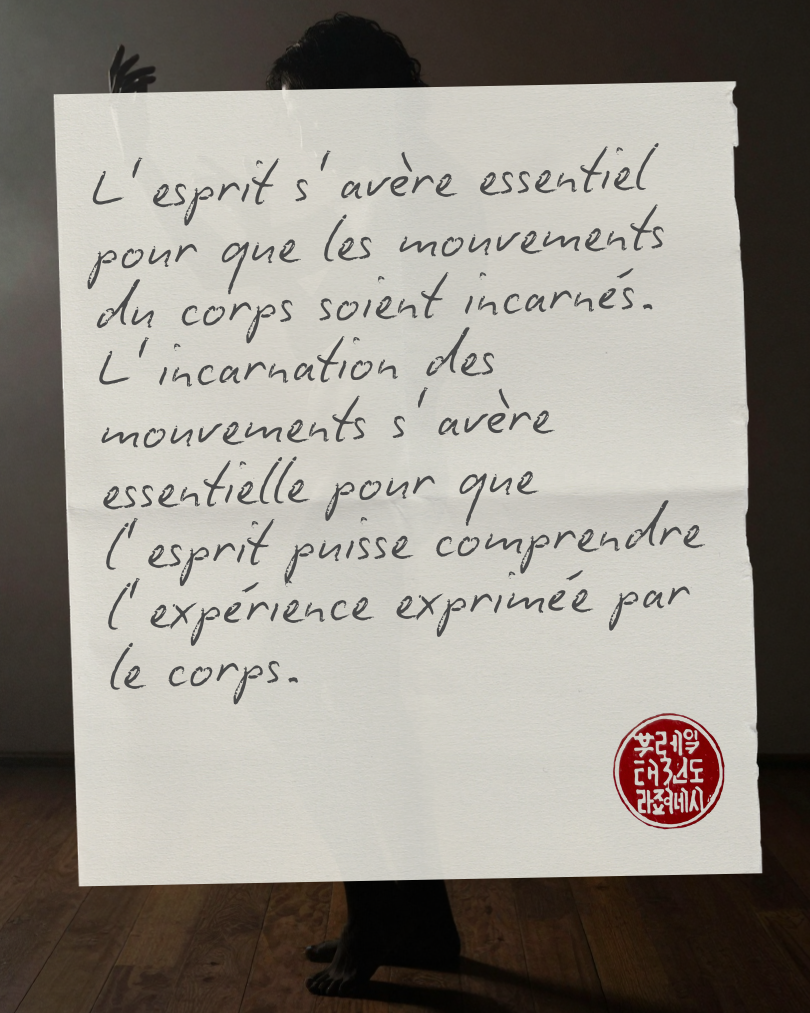 L'esprit s'avère essentiel
pour que les mouvements
du corps soient incarnés.
L'incarnation des
mouvements s'avère
essentielle pour que
l'esprit puisse comprendre
l'expérience exprimée par
le corps.